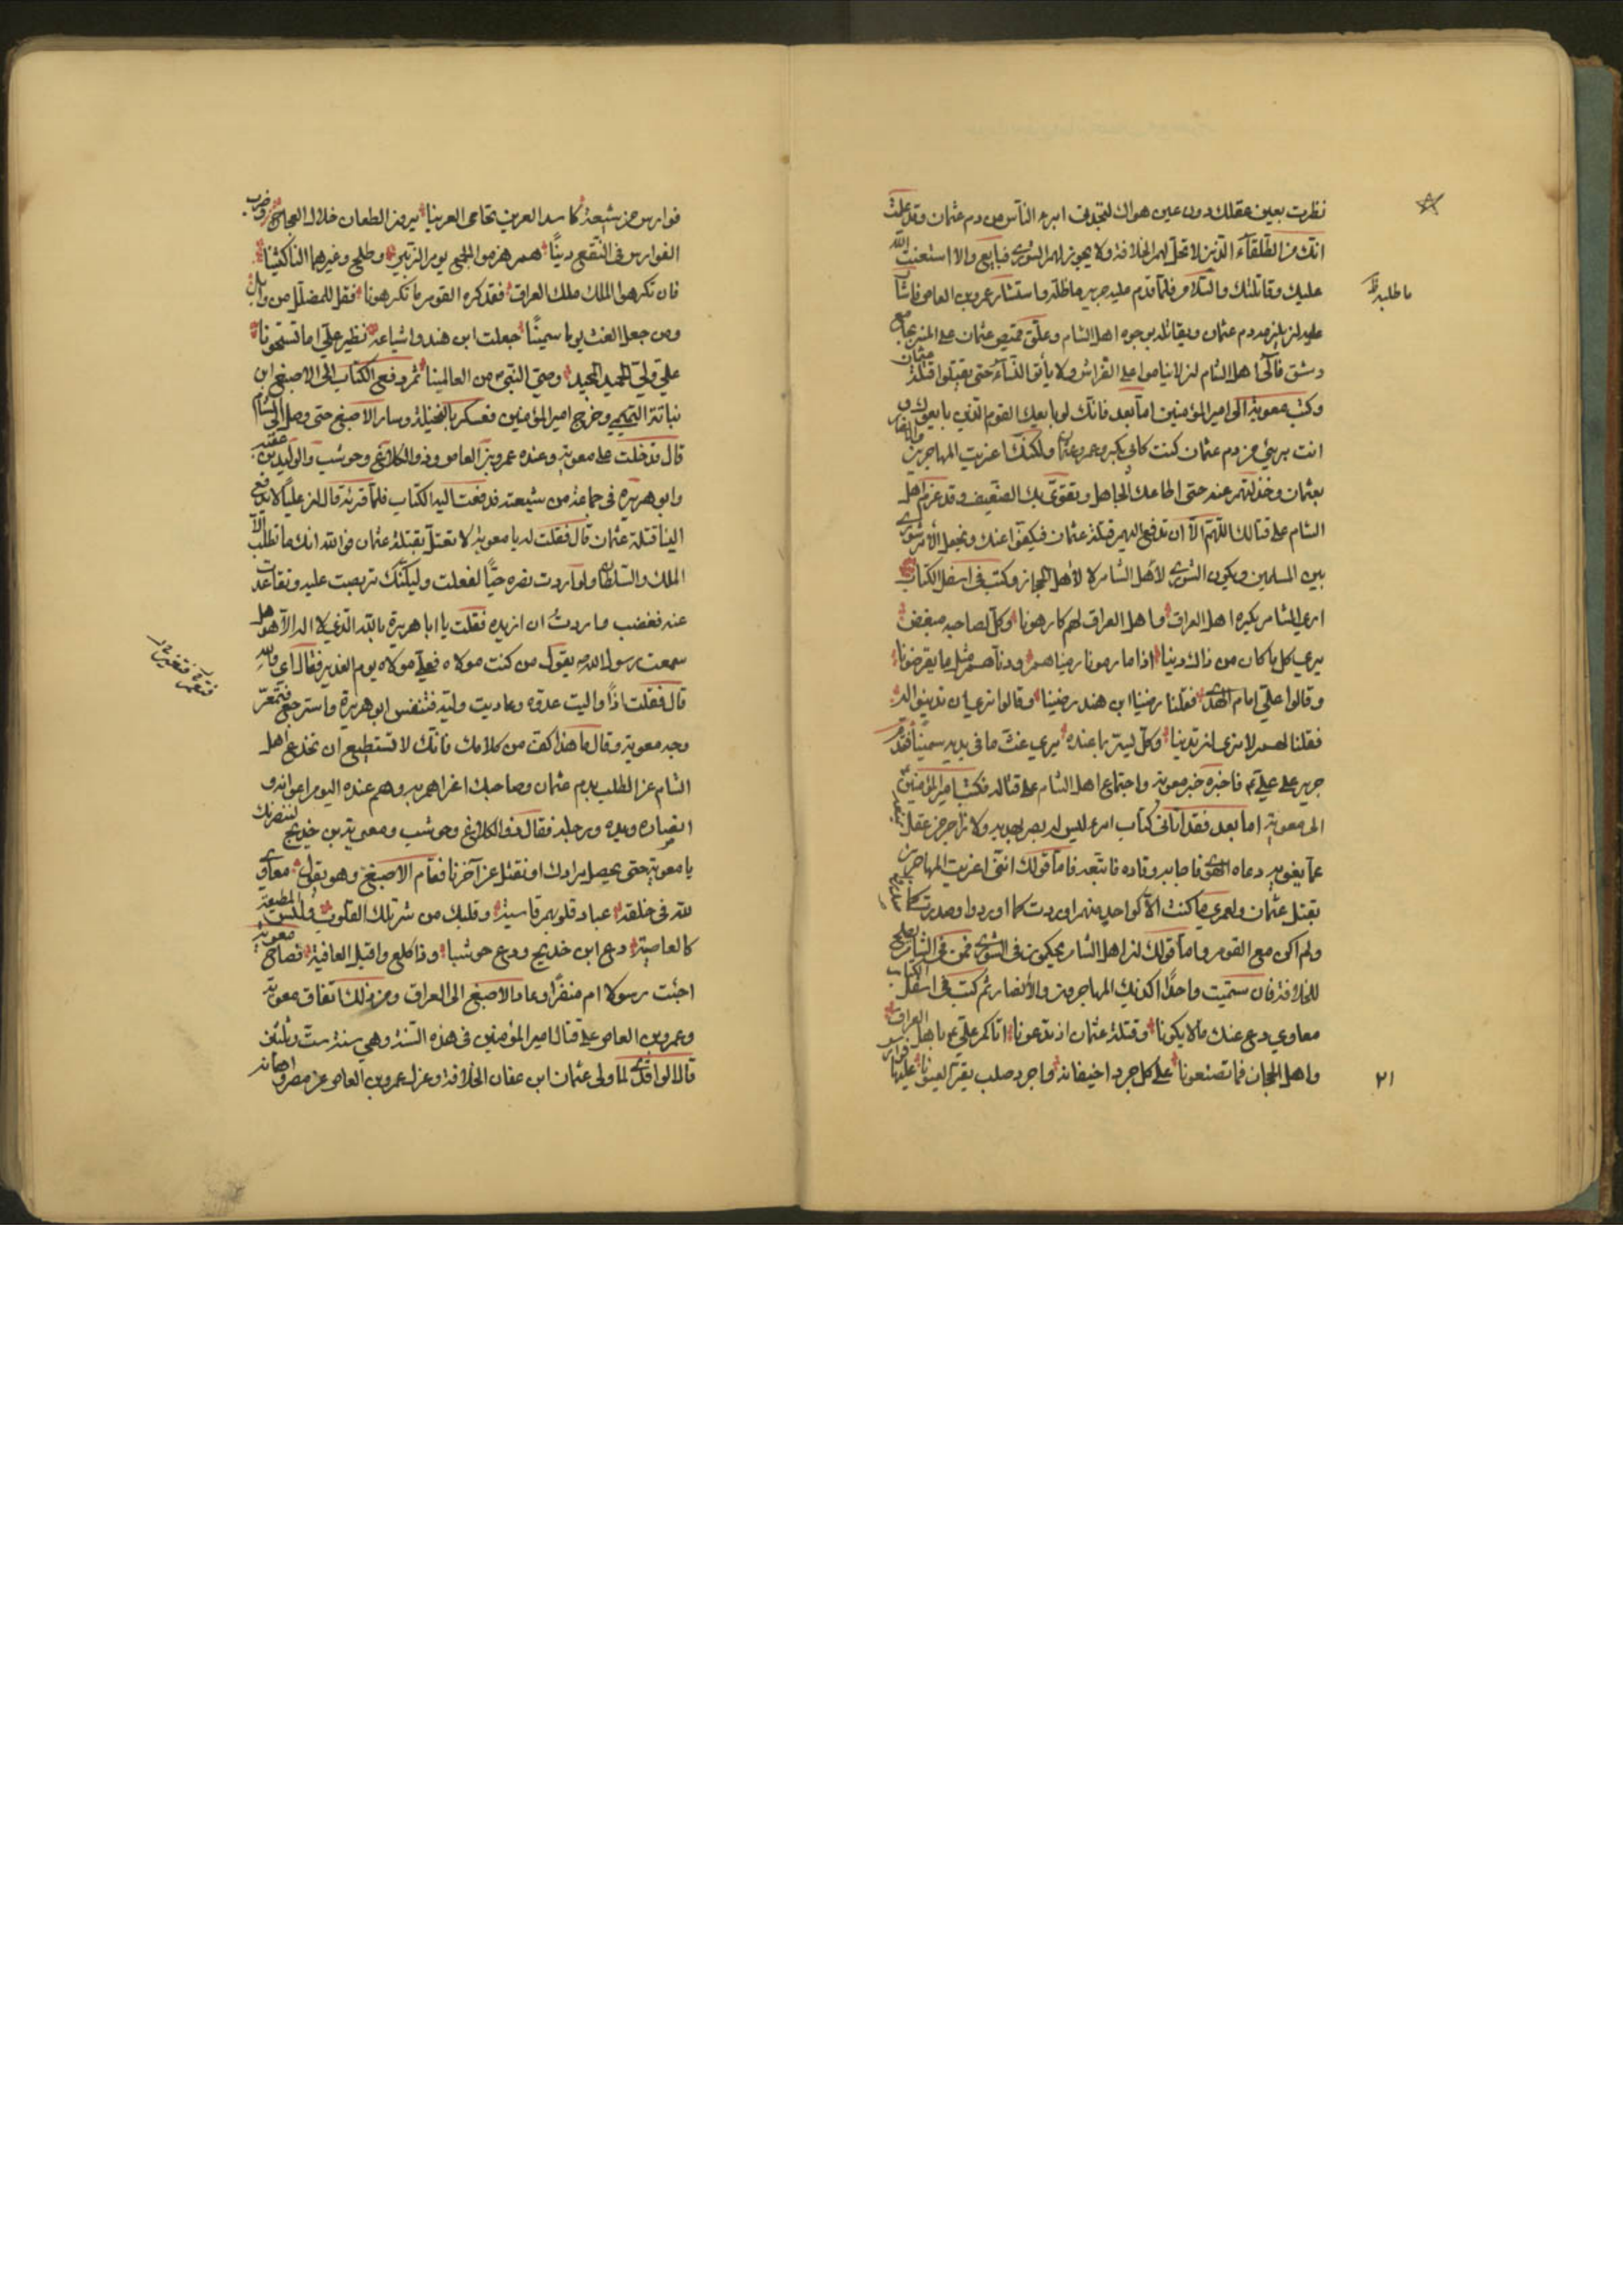 نظرت بعين عقلك دون عين هواك لتجدني ابرء الناس من دم عثمان وقد علمت
انك من الطلقاء الذين لا تحل لهم الخلافة ولا يجوز لهم الشورى فبايع والا استعنت الله
عليك وقاتلتك والسلام فلما قدم عليه جرير ماطله واستشار عمرو بن العاص فاشار
ماطلبه ظ
عليه ان يلزمه دم عثمان ويقاتله بوجوه اهل الشام وعلق قميص عثمان على المنبر بجامع
دمشق فآلى اهل الشام ان لا يناموا على الفراش ولا يأتوا النساء حتى يقتلوا قتلة عثمان
وكتب معوية الى امير المؤمنين اما بعد فانك لو بايعك القوم الذين بايعوك و
انت بريء من دم عثمان كنت كابي بكر وعمر وعثمان ولكنك اغريت المهاجرين والانصار
بعثمان وخذلتهم عنه حتى اطاعك الجاهل وتقوى بك الضعيف وقد عزم اهل
الشام على قتالك اللهم الا ان تدفع اليهم قتلة عثمان فيكفوا عنك ونجعل الامر شورى
بين المسلمين ويكون الشورى لاهل الشام لا لاهل الحجاز وكتب في اسفل الكتاب
ارى الشام يكره اهل العراق واهل العراق لهم كارهونا وكل لصاحبه مبغض
يرى كل ما كان من ذاك دينا اذا ما رمونا رميناهم ودناهم مثل ما يقرضونا
وقالوا علي امام الهدى فقلنا رضينا ابن هند رضينا وقالوا نرى ان تدينوا له
فقلنا لهم لا نرى ان تدينا وكل يستر بما عنده يرى غث ما في يديه سمينا فقدم
جرير على علي فاخبره خبر معوية واجتماع اهل الشام على قتاله فكتب امير المؤمنين
الى معوية اما بعد فقد اتاني كتاب امرء ليس له بصر يهديه ولا زاجر من عقل يمنعه
عما يغويه دعاه الهوى فاجابه وقاده فاتبعه فاما قولك انني اغريت المهاجرين
بقتل عثمان ولعمري ما كنت الا كواحد منهم اوردت كما اوردوا وصدرت كما صدروا
ولم اكن مع القوم واما قولك ان اهل الشام يحكون في الشورى فمن في الشام يصلح
للخلافة فان سميت واحدا اكذبك المهاجرون والانصار ثم كتب في اسفل الكتاب
معاوي دع عنك ما لا يكونا وقتلة عثمان اذ تدعونا اتاكم علي باهل العراق
واهل الحجاز فما تصنعونا على كل جرداخيفانة واجرد صلب يقر العيونا عليها فوارس
٢١
فوارس من شيعة كاسد العرين تحامى العرينا يرون الطعان خلال العجاج وضرب
الفوارس في النقع دينا هم هزموا الجمع يوم الزبير وطلح وغيرهما الناكثينا
فان تكرهوا الملك ملك العراق فقد كره القوم ما تكرهونا فقل للمضلل من وائل
ومن جعل الغث يوما سمينا جعلت ابن هند واشياعه نظير علي اما تستحونا
علي ولي الحميد المجيد وصي النبي من العالمينا ثم دفع الكتاب الى الاصبغ ابن
نباتة التميمي وخرج امير المؤمنين فعسكر بالنخيلة وسار الاصبغ حتى وصل الى الشام
قال فدخلت على معوية وعنده عمرو بن العاص وذو الكلاع وحوشب والوليد بن عقبة
وابو هريرة في جماعة من شيعته فدفعت اليه الكتاب فلما قرئه قال ان عليا لا يدفع
الينا قتلة عثمان قال فقلت له يا معوية لا تعتل بقتلة عثمان فوالله انك ما تطلب الا
الملك والسلطان ولو اردت نصره حيا لفعلت وليكنك تربصت عليه وتقاعدت
عنه فغضب فاردت ان ازيده فقلت يا ابا هريرة بالله الذي لا اله الا هو هل
سمعت رسول الله يقول من كنت مولاه فعلي مولاه يوم الغدير فقال اي والله
قال فقلت اذا واليت عدوه وعاديت وليه فتنفس ابو هريرة واسترجع فتمعر
وجه معوية وقال ما هذا كف من كلامك فانك لا تستطيع ان تخدع اهل
الشام عن الطلب بدم عثمان وصاحبك اغراهم به وهم عنده اليوم اعوانه و
انصاره ويده ورجله فقال ذو الكلاع وحوشب ومعوية بن خديج لننصرنك
يا معوية حتى يحصل مرادك او نقتل عن آخرنا فقام الاصبغ وهو يقول معاوي
لله في خلقه عباد قلوبهم قاسية وقلبك من شر تلك القلوب وليس المطيعة
كالعاصية دع ابن خديج ودع حوشبا وذا كلع واقبل العافية فصاح معوية
اجئت رسولا ام منفرا وعاد الاصبغ الى العراق ومن ذلك اتفاق معوية
وعمرو بن العاص على قتال امير المؤمنين في هذه السنة وهي سنة ست وثلثين
قال الواقدي لما ولى عثمان ابن عفان الخلافة وعزل عمرو بن العاص عن مصر واهانه